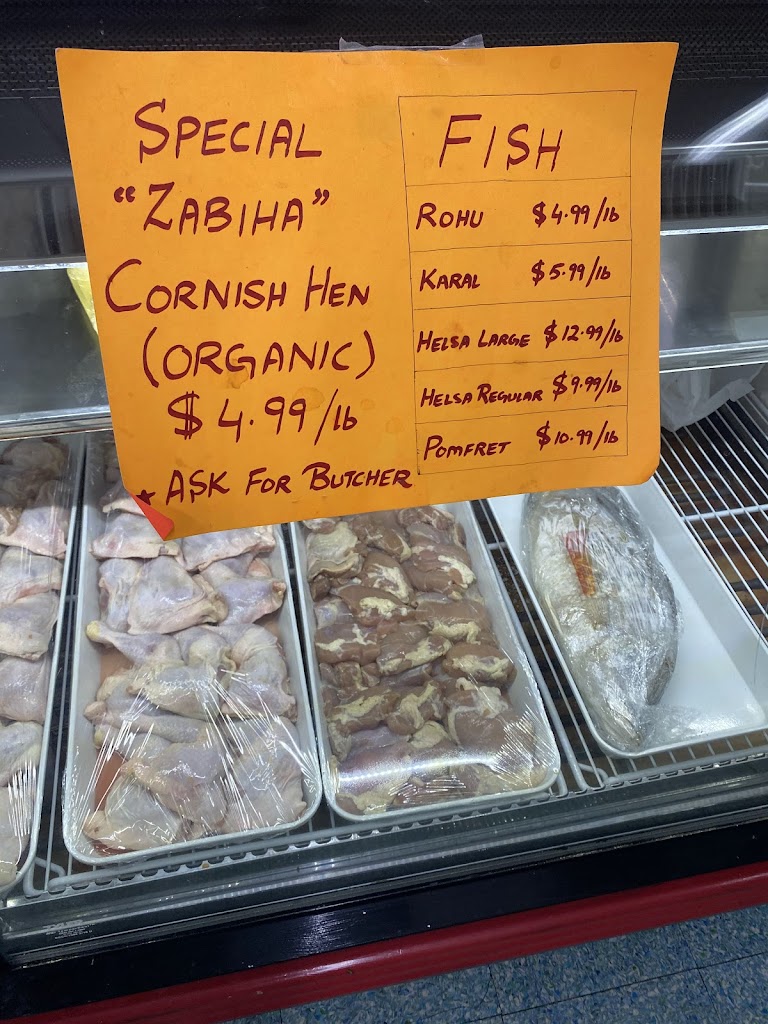 SPECIAL
"ZABIHA"
CORNISH HEN
(ORGANIC)
$4.99/lb
★ ASK FOR BUTCHER
FISH
ROHU $4.99/lb
KARAL $5.99/lb
HELSA LARGE $12.99/lb
HELSA REGULAR $9.99/lb
POMFRET $10.99/lb